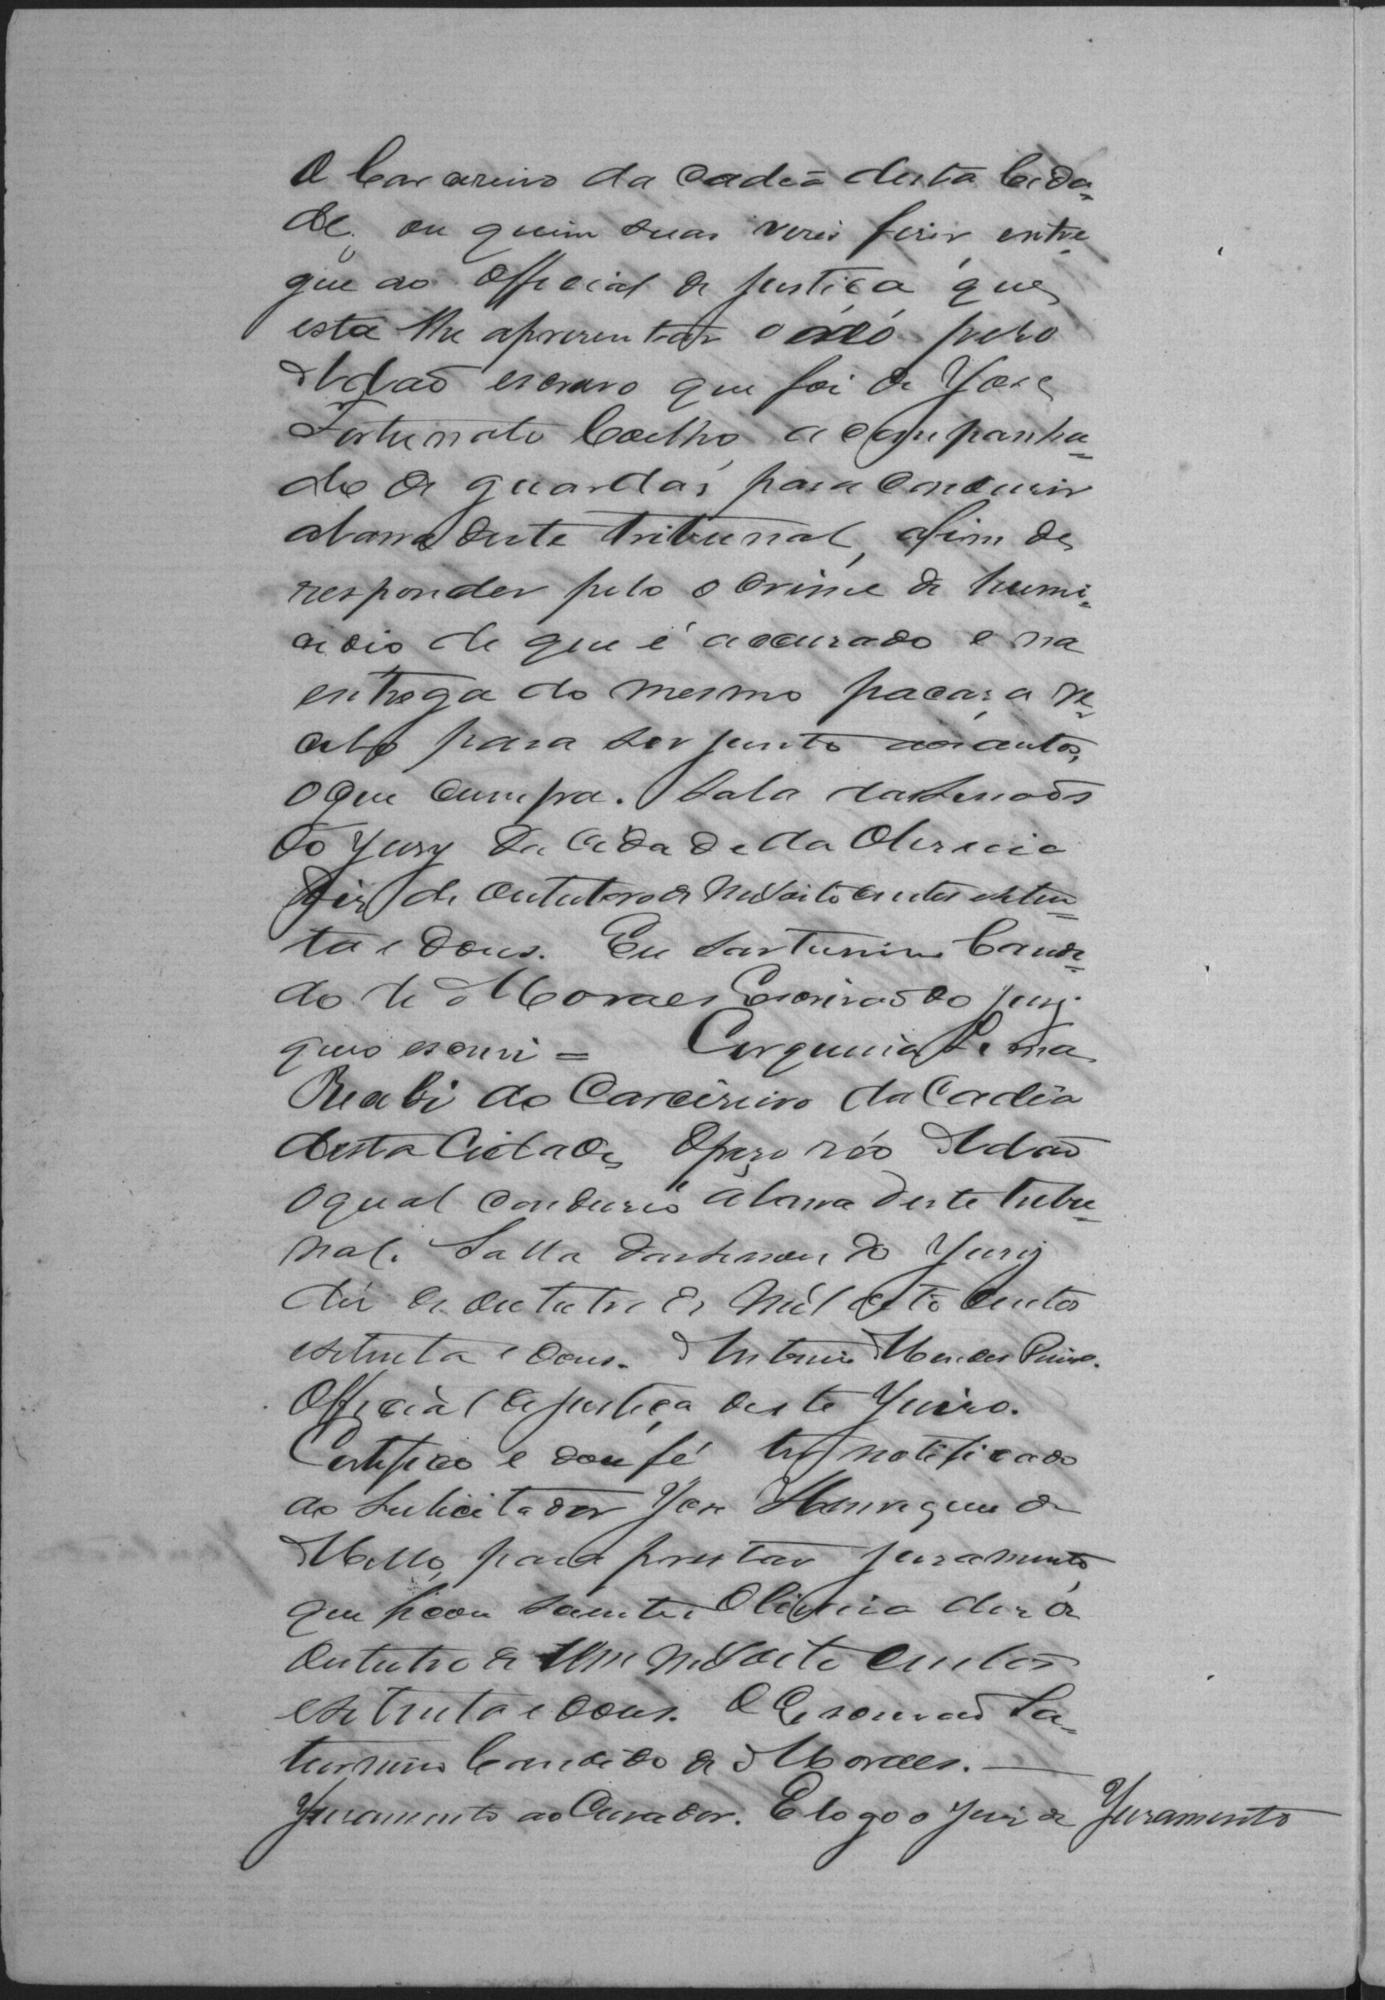 O Carcereiro da Cadeã desta Cida-
de, ou quem suas veses fizer, entre
gue ao Official de justiça que
esta lhe apresentar o réo preso
Adaõ escravo que foi de Jose
Fortunato Coelho, acompanha-
do de guardas para conduzir
a barra deste tribunal, afim de
responder pelo o crime de humi-
cidio de que é accusado e na
entrega do mesmo paçará re-
cibo para ser junto aos autos,
o que cumpra. Sala das Sessoẽs
do Jury da Cidade da Oliveira
Dez de Outubro de Mil oito centos esetem-
ta e dous. Eu Saturnino Candi-
do de Moraes Escrivaõ do Jury
que o escrivi = Cerqueira Lima
Recebi do Carcereiro da Cadêa
desta Cidade, o preso réo Adaõ
o qual conduzi á barra deste tribu-
nal. Salla das Sessoes do Jury
déz de Outubro de Mil oito centos
esetenta e dous. Antonio Mendes
Official de justiça deste Juizo.
Certifico e dou fé ter notificado
ao Sulicitador Jose Henrique de
Mello, para prestar juramento
que ficou sciente. Oliveira dez de
Outubro de mil oito centos
esetenta e dous. O Escrivaõ Sa-
turnino Candido de Moraes. —
Juramento ao Curador. E logo o Juiz de Juramento